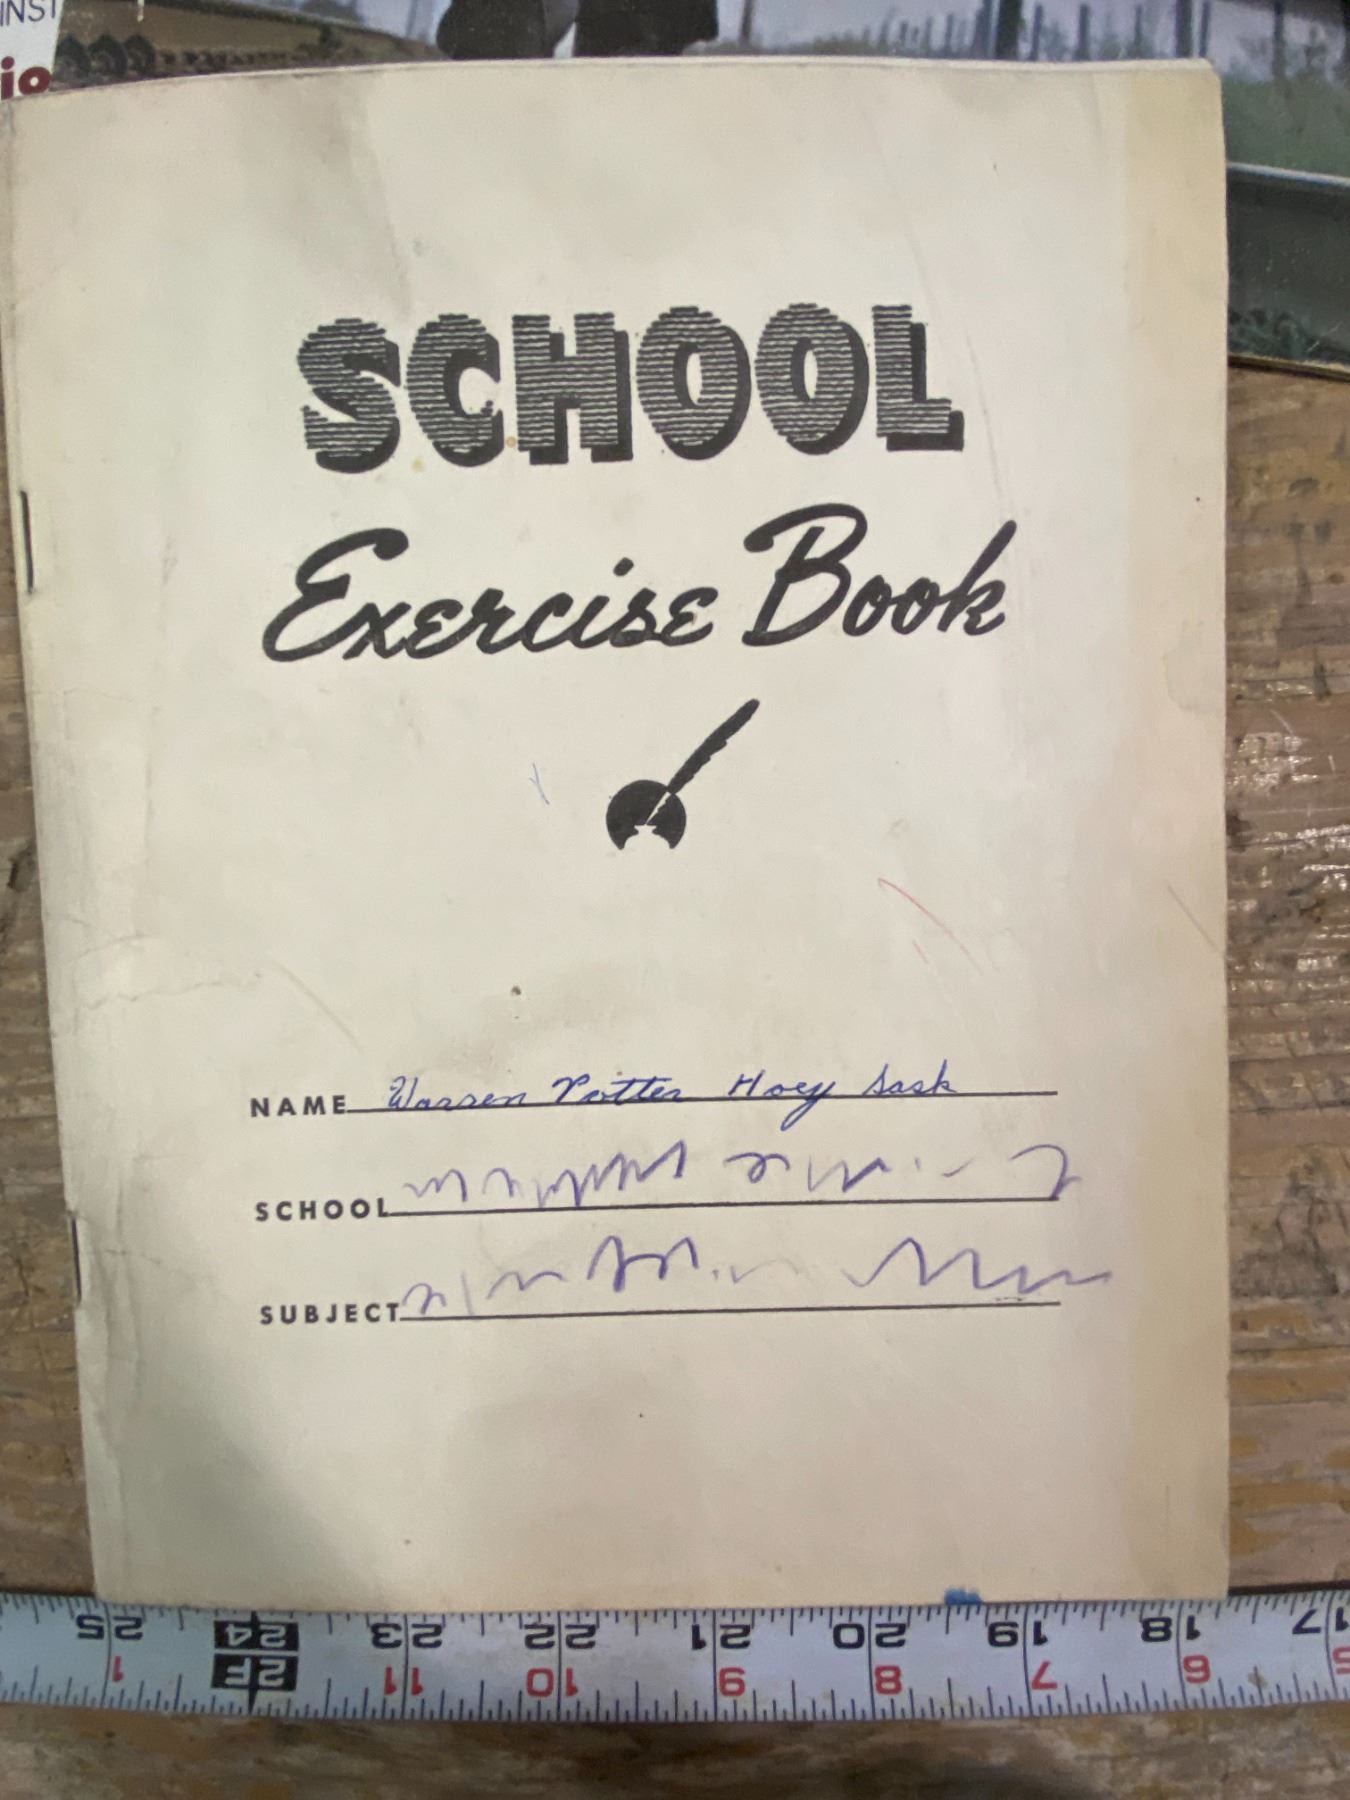 INST
io
SCHOOL
Exercise Book
NAME Warren Potter Hoey Sask
SCHOOL
SUBJECT
25 24 23 22 21 20 19 18 17
1 2F 11 10 9 8 7 6 5